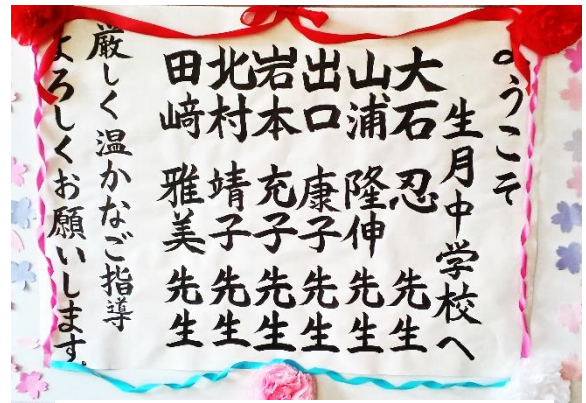 ようこそ
生月中学校へ
大石 忍 先生
山浦 隆伸 先生
出口 康子 先生
岩本 充子 先生
北村 靖子 先生
田﨑 雅美 先生
厳しく温かなご指導
よろしくお願いします。